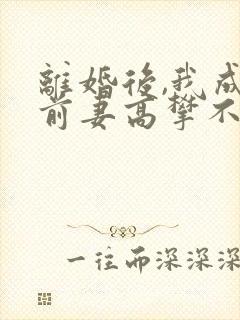 離婚後,我成
前妻高攀不
一往而深深深